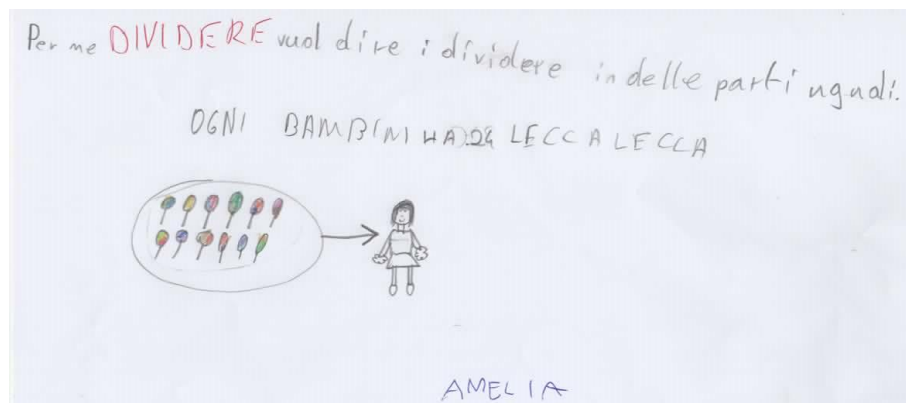 Per me DIVIDERE vuol dire i dividere in delle parti uguali.
OGNI BAMBINI HA 24 LECCA LECCA
AMELIA